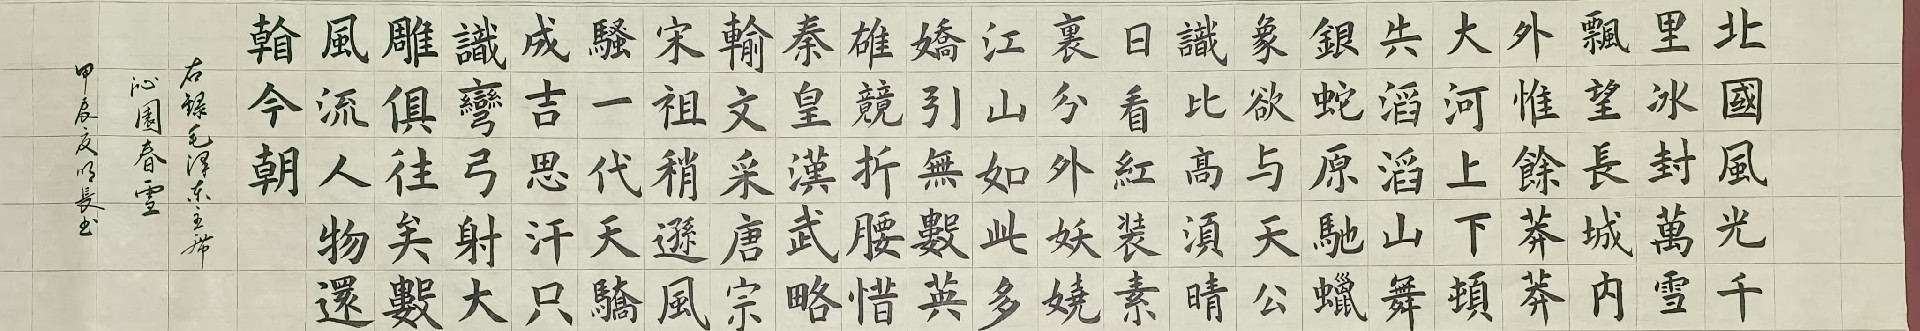 北國風光千
里冰封萬雪
飄望長城内
外惟餘莽莽
大河上下頓
失滔滔山舞
銀蛇原馳蠟
象欲与天公
識比高湏晴
日看紅装素
裏分外妖嬈
江山如此多
嬌引無數英
雄競折腰惜
秦皇漢武略
輸文采唐宗
宋祖稍遜風
騷一代天驕
成吉思汗只
識彎弓射大
雕俱往矣數
風流人物還
今朝
右錄毛澤东主席
沁園春雪
甲辰夏明長书